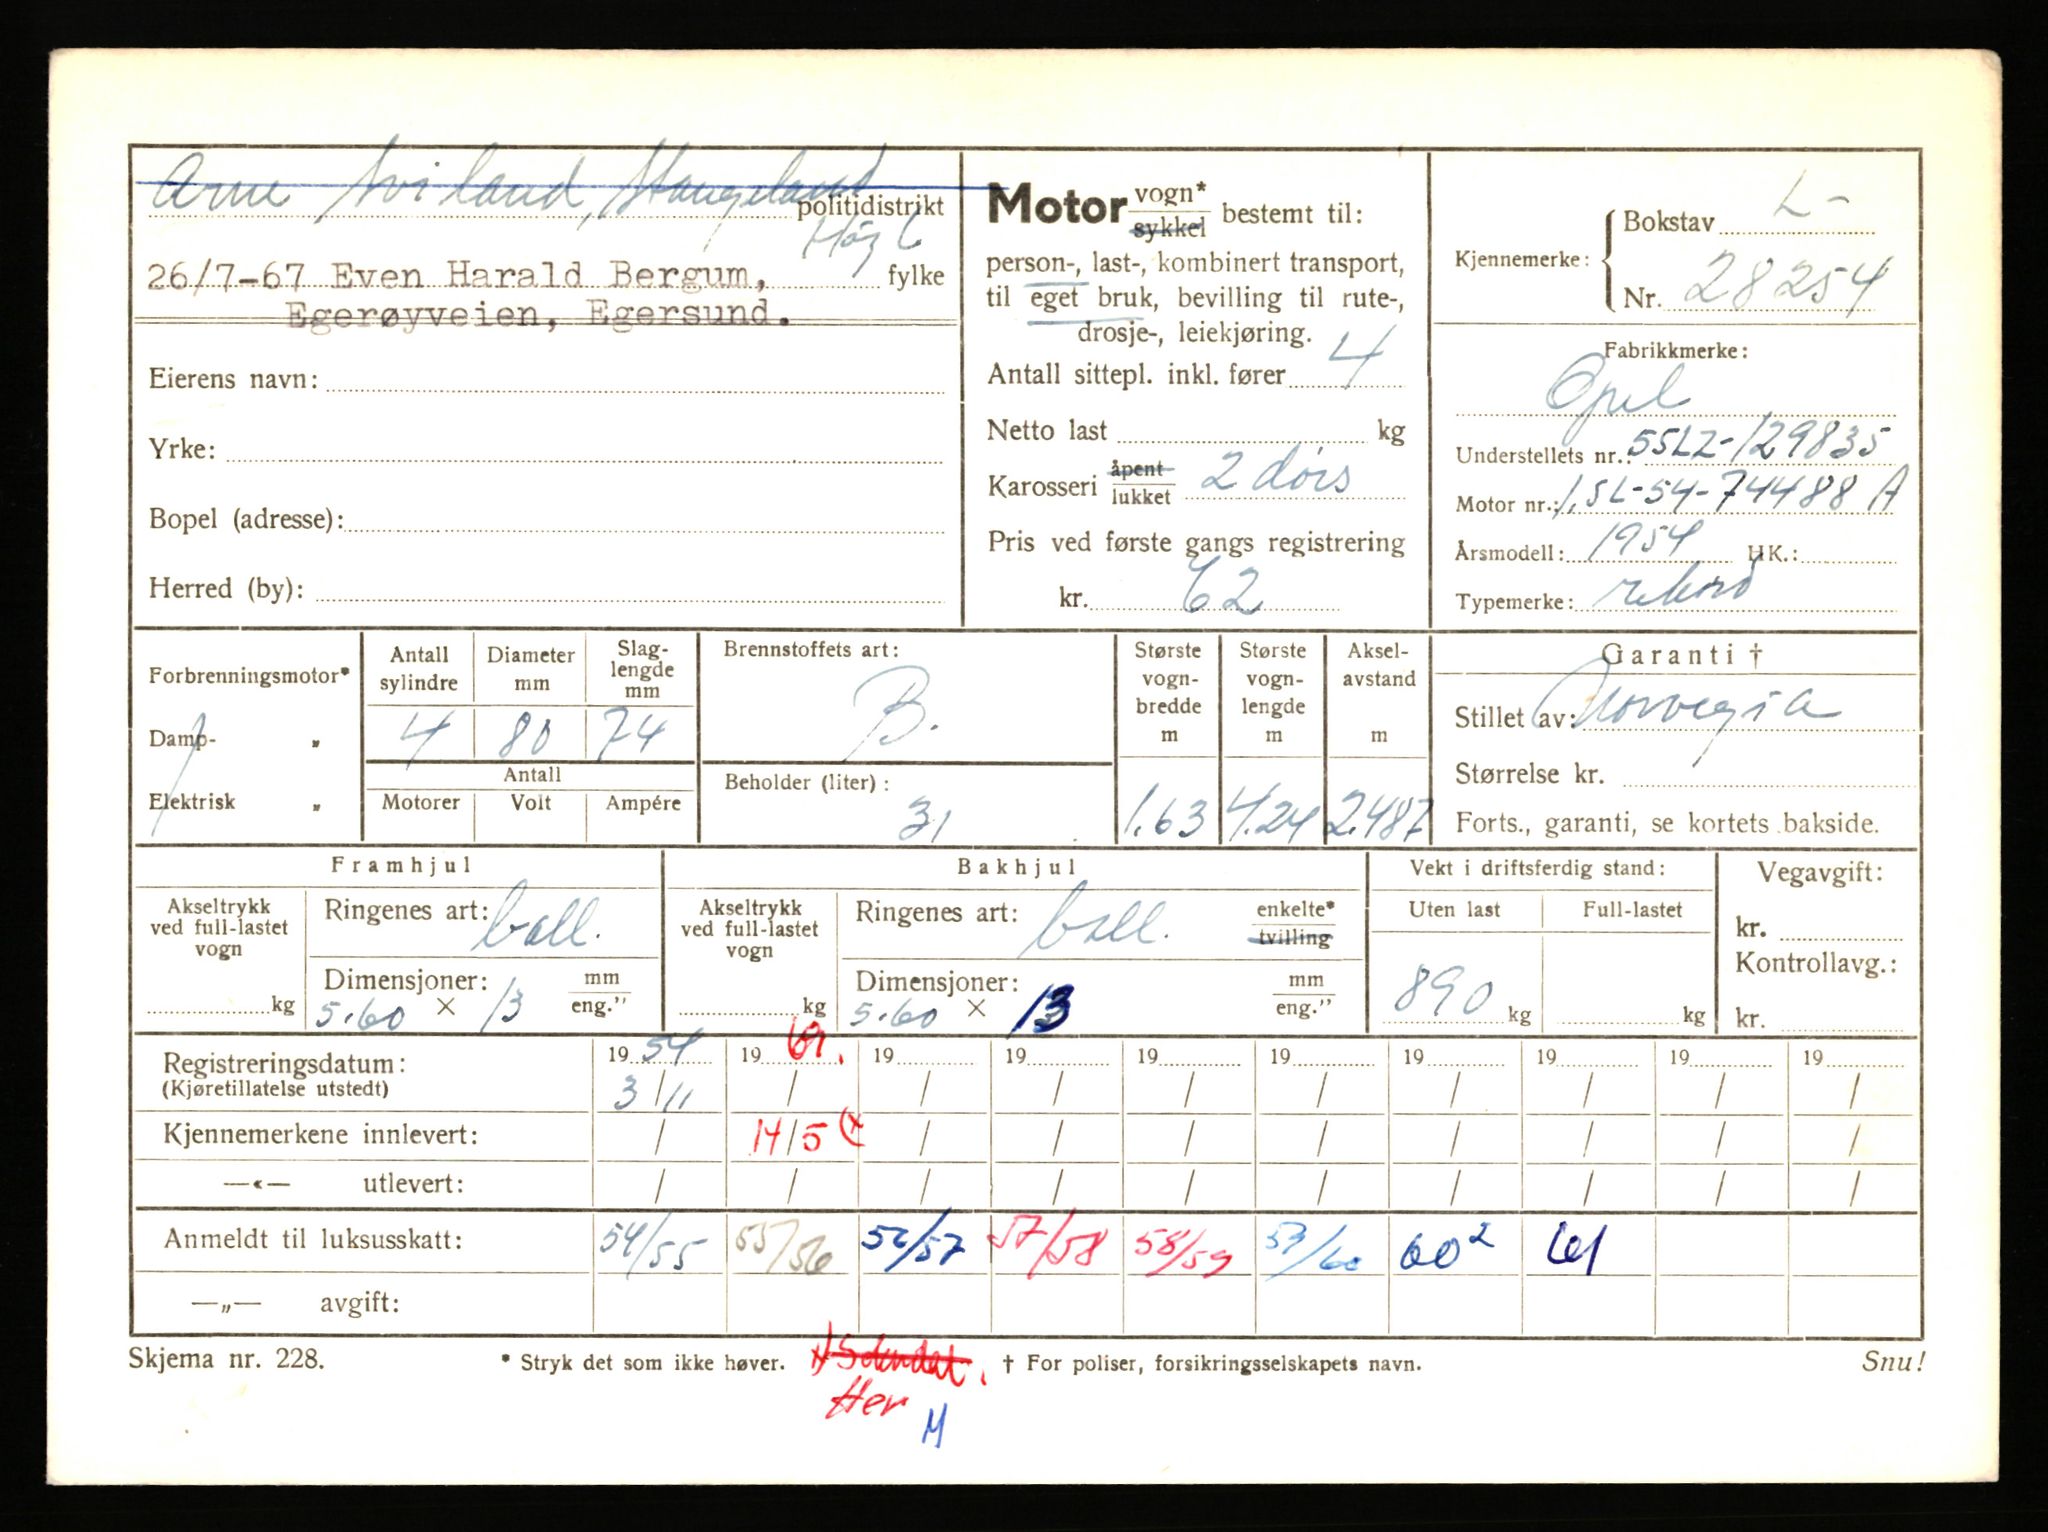 Arne Sviland, Stangeland
politidistrikt
26/7-67 Even Harald Bergum,
fylke
Egerøyveien, Egersund.
Eierens navn:
Yrke:
Bopel (adresse):
Herred (by):
Motor vogn* sykkel bestemt til:
person-, last-, kombinert transport,
til eget bruk, bevilling til rute-,
drosje-, leiekjøring.
Antall sittepl. inkl. fører 4
Netto last kg
Karosseri åpent lukket 2 dørs
Pris ved første gangs registrering
kr. 62
Kjennemerke:
Bokstav L-
Nr. 28254
Fabrikkmerke:
Opel
Understellets nr.: 55LZ-129835
Motor nr.: 1,5L-54-74488 A
Årsmodell: 1954 HK.:
Typemerke: rekord
Forbrenningsmotor*
Damp- „
Elektrisk „
Antall sylindre
Diameter mm
Slag-lengde mm
4 80 74
Antall
Motorer Volt Ampére
Brennstoffets art:
B.
Beholder (liter):
31
Største vogn-bredde m
1.63
Største vogn-lengde m
4.24
Aksel-avstand m
2.487
Garanti †
Stillet av: Norvegia
Størrelse kr.
Forts., garanti, se kortets bakside.
Framhjul
Akseltrykk ved full-lastet vogn
kg
Ringenes art: ball.
Dimensjoner: mm eng."
5.60 × 13
Bakhjul
Akseltrykk ved full-lastet vogn
kg
Ringenes art: ball. enkelte* tvilling
Dimensjoner: mm eng."
5.60 × 13
Vekt i driftsferdig stand:
Uten last Full-lastet
890 kg kg
Vegavgift:
kr.
Kontrollavg.:
kr.
Registreringsdatum: 19 54 19 61. 19 19 19 19 19 19 19 19
(Kjøretillatelse utstedt) 3/11 / / / / / / / / /
Kjennemerkene innlevert: / 14/5 (x / / / / / / / /
—«— utlevert: / / / / / / / / / /
Anmeldt til luksusskatt: 54/55 55/56 56/57 57/58 58/59 59/60 60² 61
—„— avgift:
Skjema nr. 228.
* Stryk det som ikke høver.
† For poliser, forsikringsselskapets navn.
Snu!
Her
M